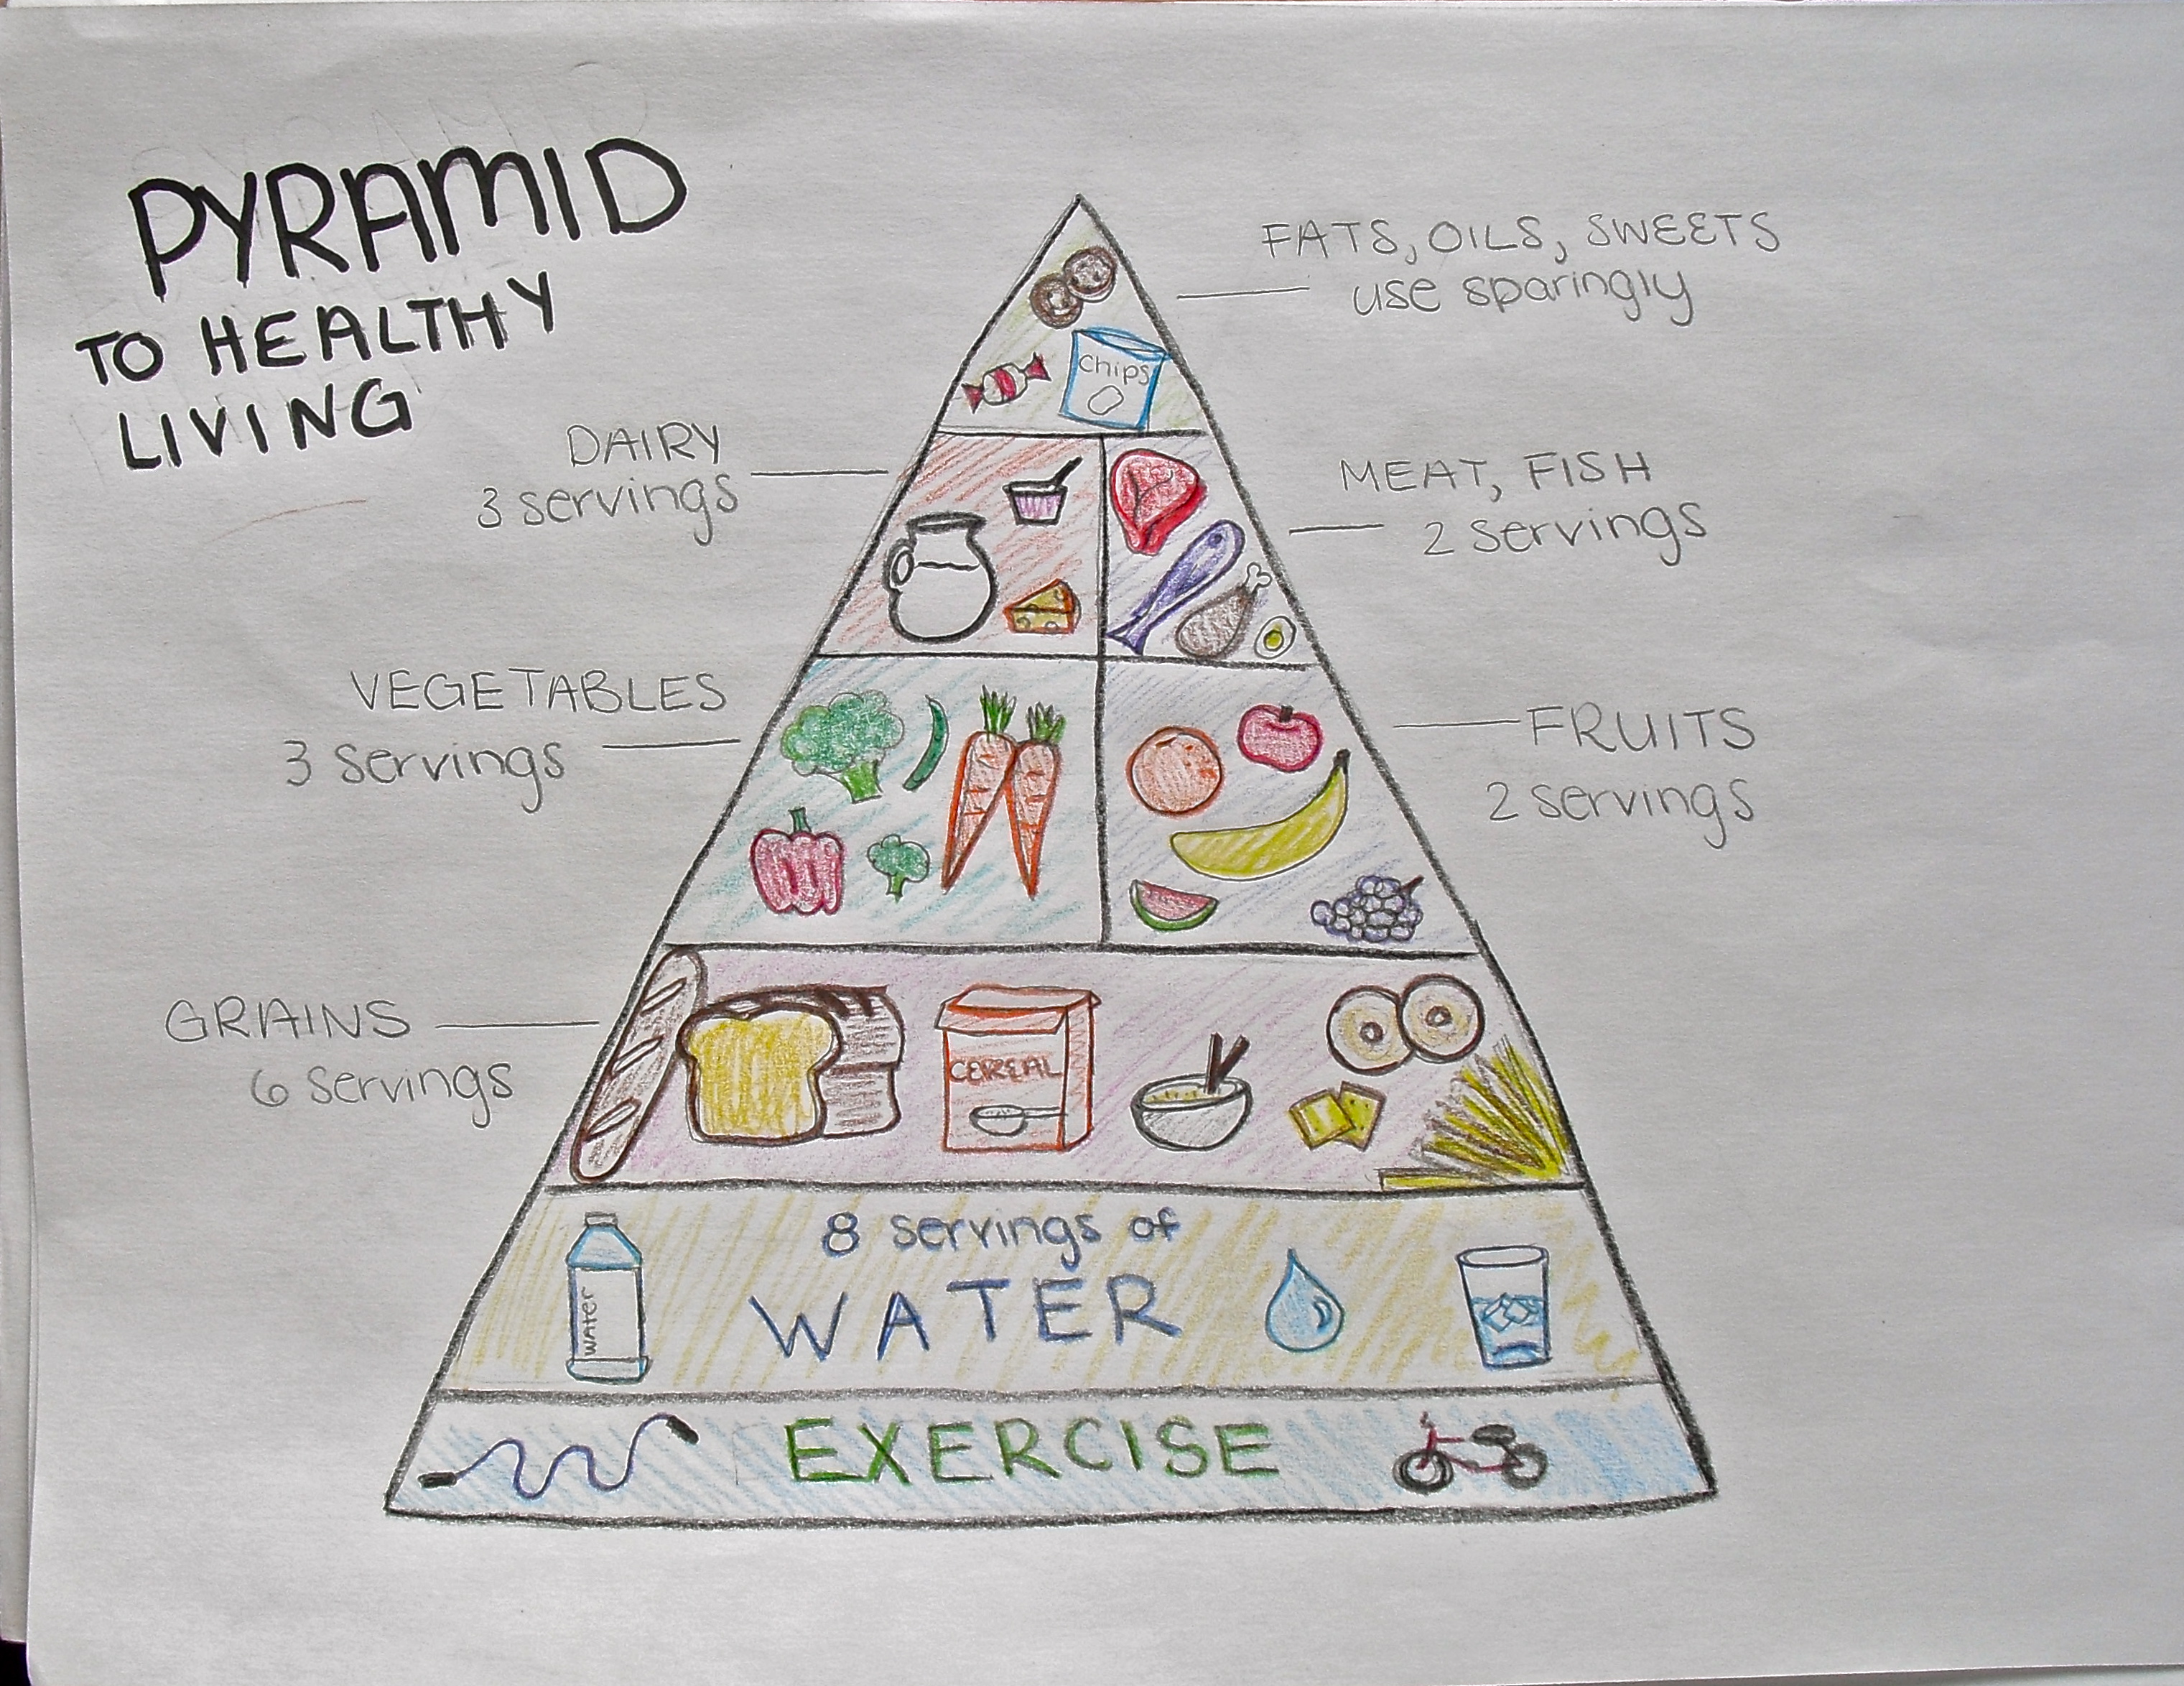 PYRAMID
TO HEALTHY
LIVING
FATS, OILS, SWEETS
use sparingly
Chips
DAIRY
3 servings
MEAT, FISH
2 servings
VEGETABLES
3 servings
FRUITS
2 servings
GRAINS
6 servings
CEREAL
8 servings of
WATER
water
EXERCISE